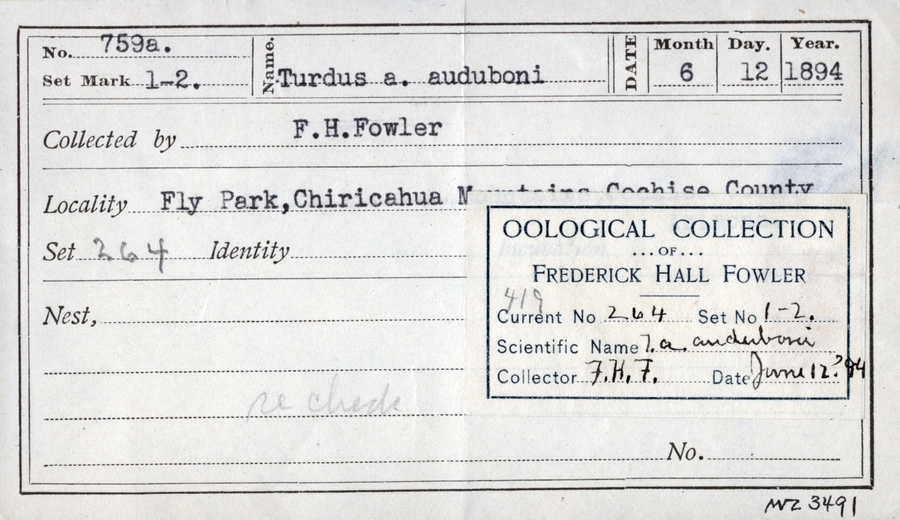 No. 759a. Name. Turdus a. auduboni DATE Month Day. Year.
Set Mark 1-2. 6 12 1894
Collected by F.H.Fowler
Locality Fly Park,Chiricahua Mountains,Cochise County
Set 264 Identity
Nest,
re check
No.
OOLOGICAL COLLECTION
...OF...
FREDERICK HALL FOWLER
419
Current No 264 Set No 1-2.
Scientific Name T. a. auduboni
Collector F.H.F. Date June 12? 94
MVZ 3491